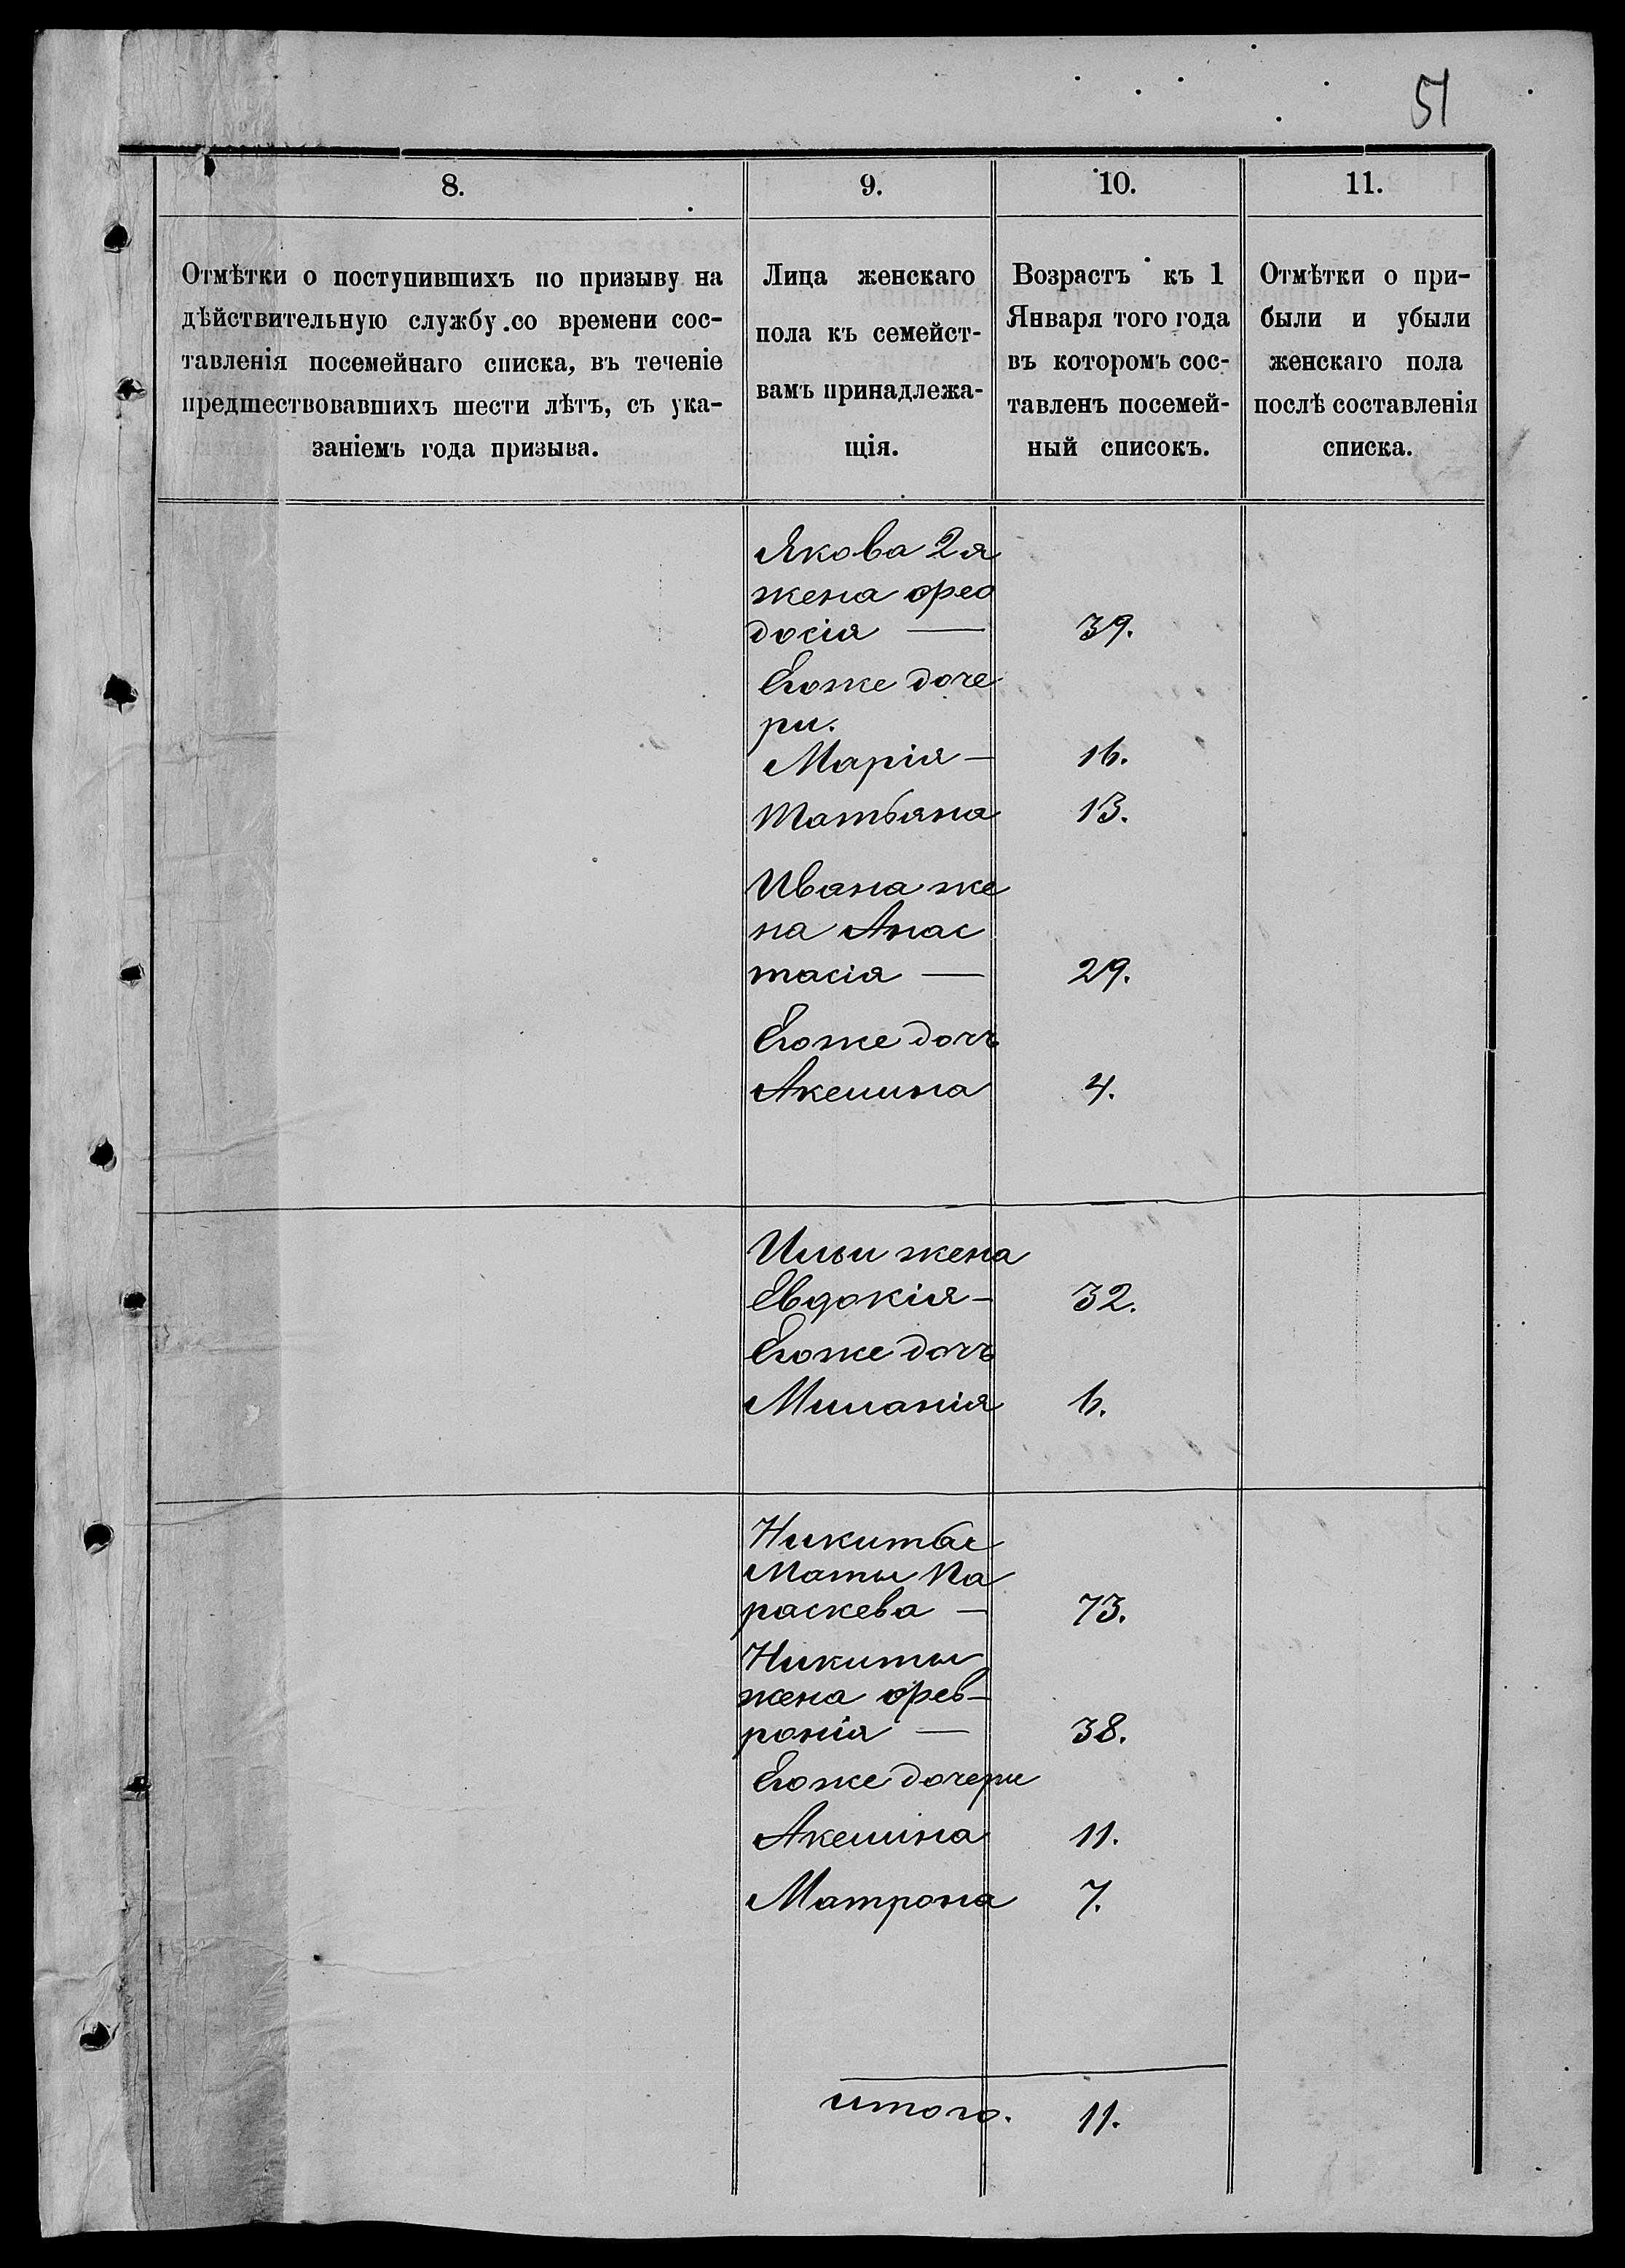 51
8.
9.
10.
11.
Отмѣтки о поступившихъ по призыву на
дѣйствительную службу со времени сос-
тавленія посемейнаго списка, въ теченіе
предшествовавшихъ шести лѣтъ, съ ука-
заніемъ года призыва.
Лица женскаго
пола къ семейст-
вамъ принадлежа-
щія.
Возрастъ къ 1
Января того года
въ которомъ сос-
тавленъ посемей-
ный списокъ.
Отмѣтки о при-
были и убыли
женскаго пола
послѣ составленія
списка.
Якова 2я
жена Фео
досія — 39.
Егоже доче
ри.
Марія — 16.
Татьяна 13.
Ивана же
на Анас
тасія — 29.
Егоже дочь
Акелина 4.
Ильи жена
Евдокія — 32.
Егоже дочь
Миланія 6.
Никиты
Мать Па
раскева — 73.
Никиты
жена Фев-
ронія — 38.
Егоже дочери
Акелина 11.
Матрона 7.
итого. 11.